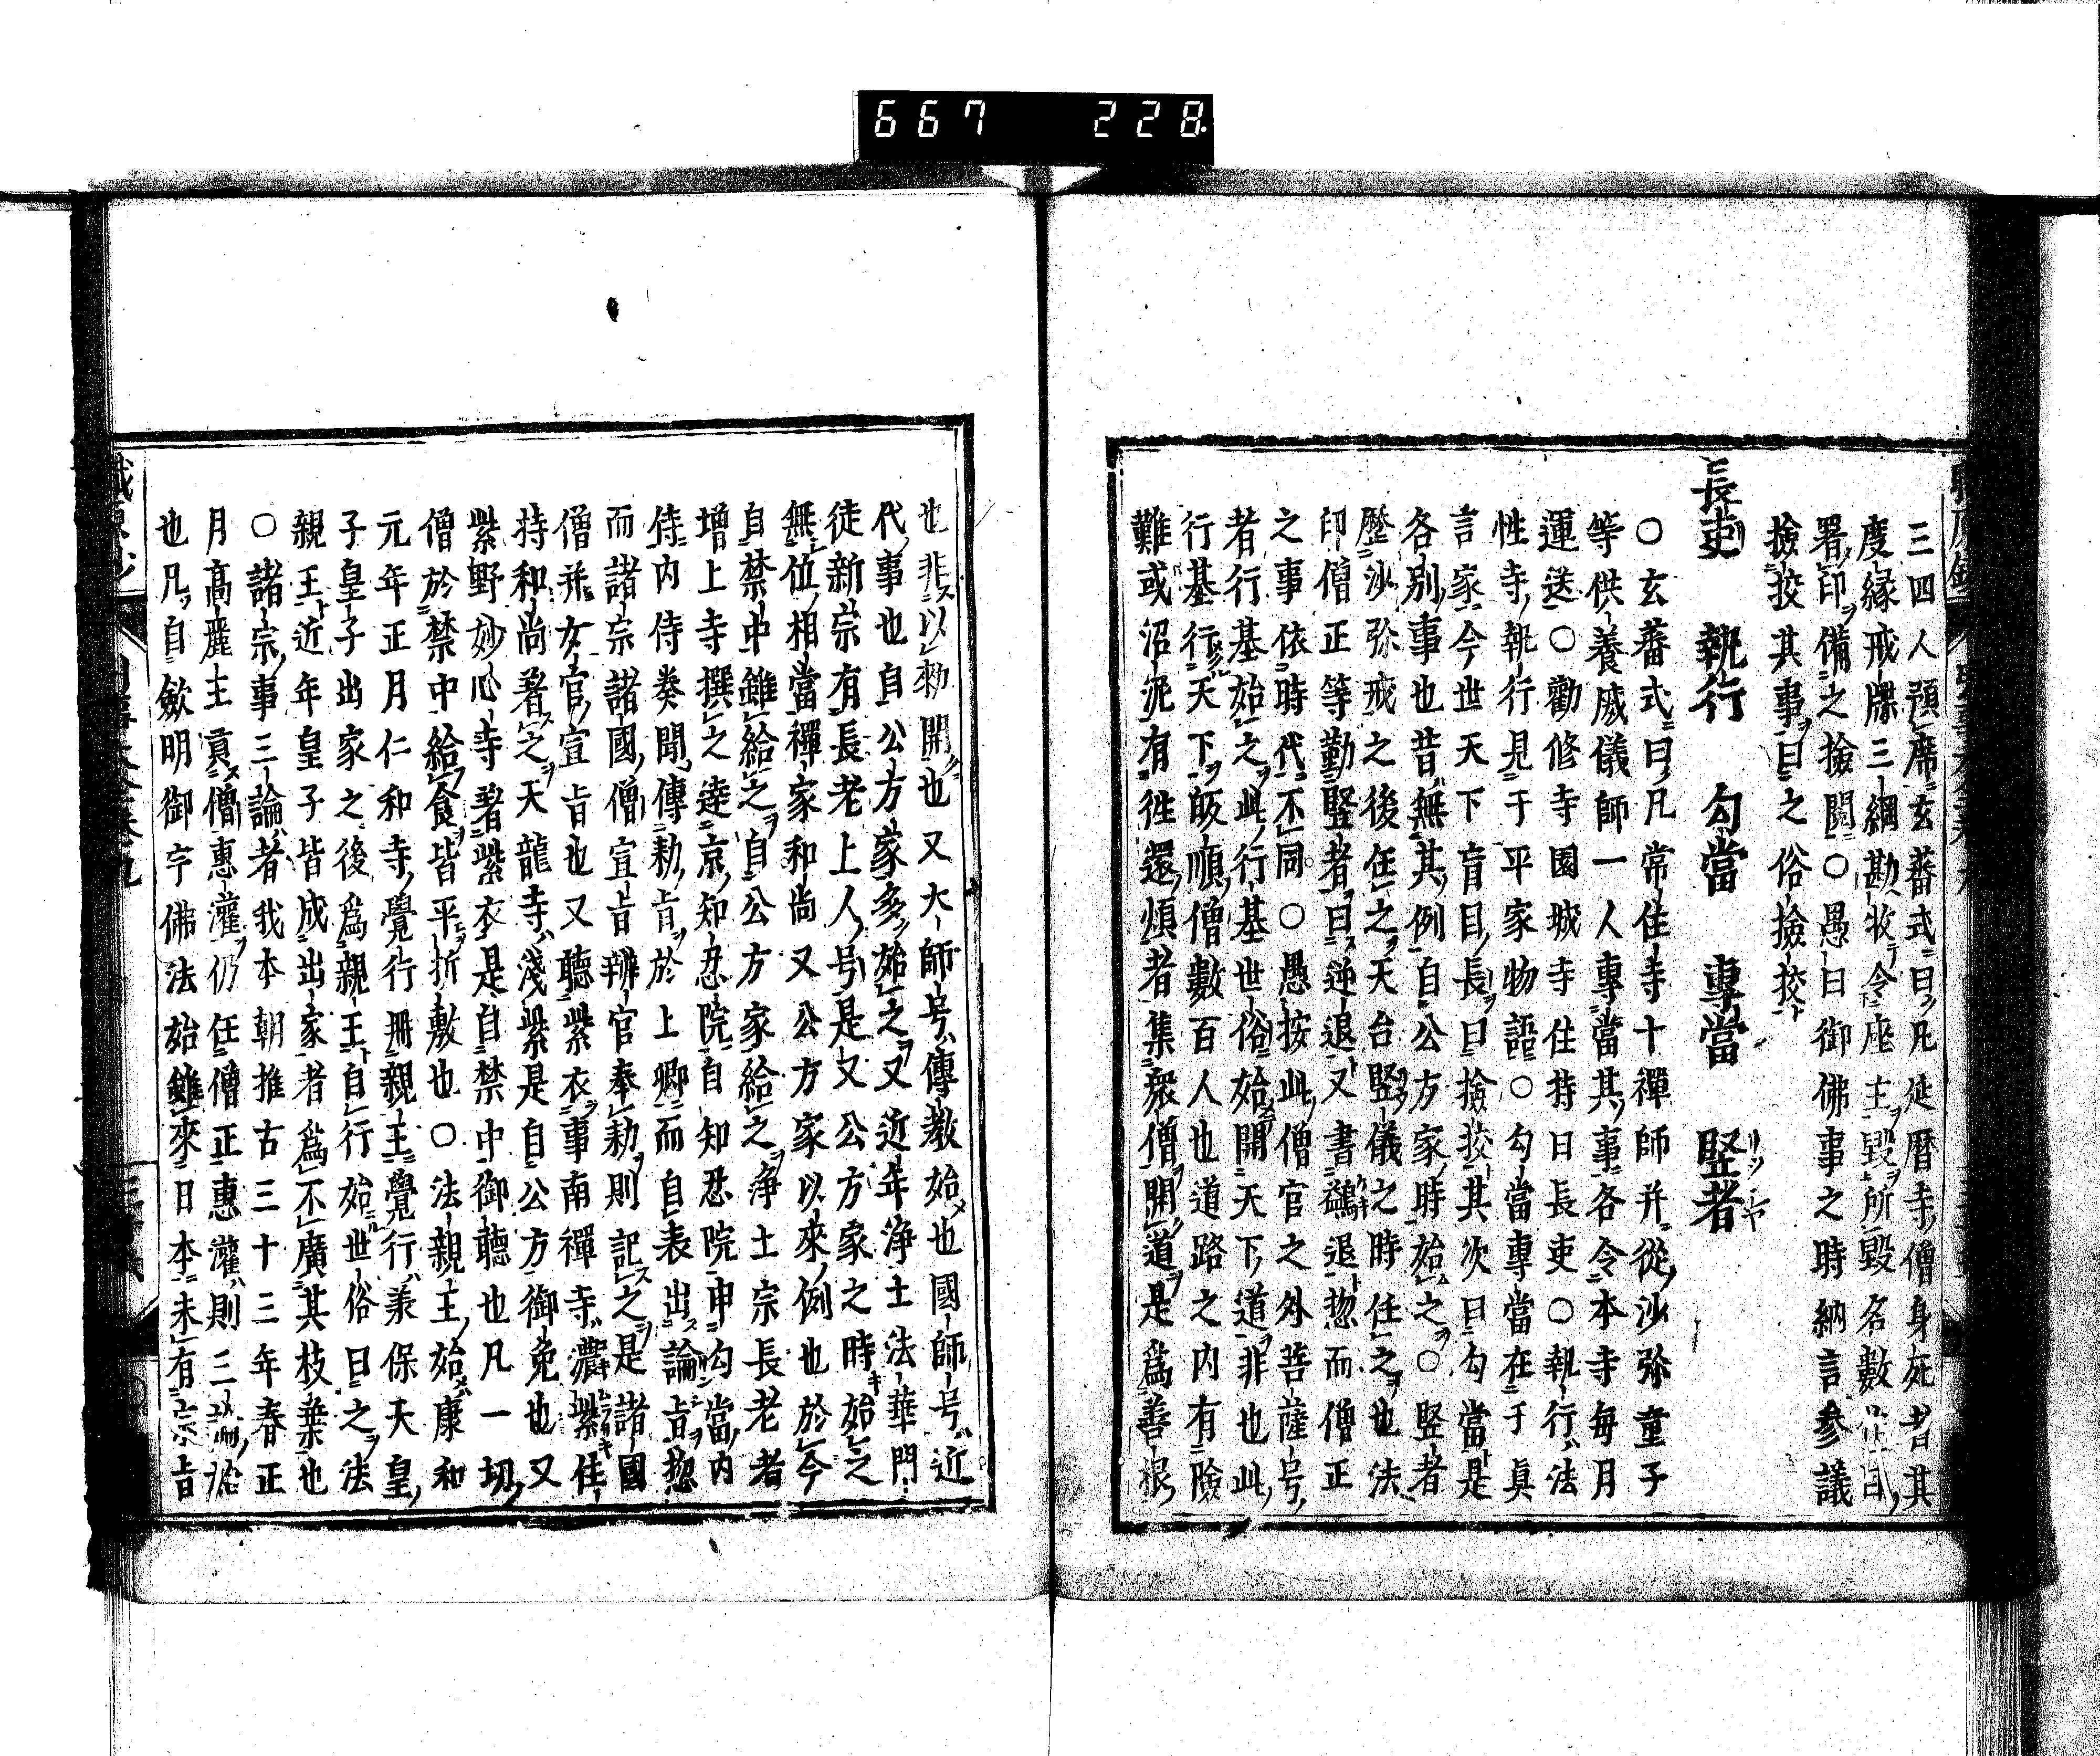 667 228
三四人預席玄蕃式曰凡延暦寺僧身死者其
度縁戒牒三綱勘收令座主毀所毀名數
署印備之撿閲○愚曰御佛事之時納言参議
撿挍其事曰之俗撿挍
長吏 執行 勾當 專當 竪者
○玄蕃式曰凡常住寺十禪師并從沙弥童子
等供養威儀師一人專當其事各令本寺毎月
運送○勸修寺園城寺住持曰長吏○執行法
性寺執行見于平家物語○勾當專當在于眞
言家今世天下盲目長曰撿挍其次曰勾當是
各別事也昔無其例自公方家時始之○竪者
歴沙弥戒之後任之天台竪儀之時任之也法
印僧正等勤竪者曰逆退又書鷁退惣而僧正
之事依時代不同○愚按此僧官之外菩薩号
者行基始之此行基世俗始開天下道非也此
行基行天下皈順僧數百人也道路之内有險
難或沼泥有徃還煩者集衆僧開道是爲善根
也非以勅開也又大師号傳教始也國師号近
代事也自公方家多始之又近年淨土法華門
徒新宗有長老上人号是又公方家之時始之
無位相當禪家和尚又公方家以來例也於今
自禁中雖給之自公方家給之淨土宗長老者
增上寺撰之達京知忍院自知忍院申勾當内
侍内侍奏聞傳勅旨於上卿而自表出論旨惣
而諸宗諸國僧宣旨辨官奉勅則記之是諸國
僧并女官宣旨也又聽紫衣事南禪寺濃紫住
持和尚著之天龍寺淺紫是自公方御免也又
紫野妙心寺著紫衣是自禁中御聽也凡一切
僧於禁中給食皆平折敷也○法親王始康和
元年正月仁和寺覺行冊親王覺行羕保天皇
子皇子出家之後爲親王自行始世俗曰之法
親王近年皇子皆成出家者爲不廣其枝葉也
○諸宗事三論者我本朝推古三十三年春正
月高麗主貢僧惠灌仍任僧正惠灌則三論
也凡自欽明御宇佛法始雖來日本未有宗旨